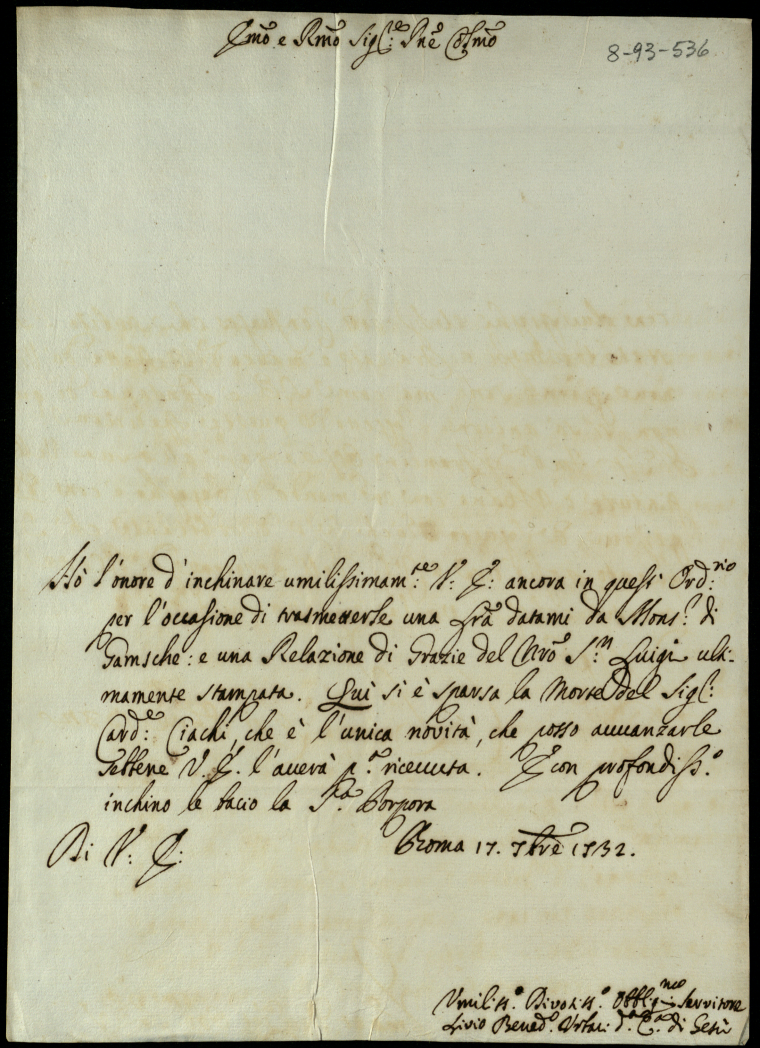 Emo e Rmo Sigre: Pne Colmo
8-93-536
Hò l'onore d'inchinare umilissimamte: V: E: ancora in questo Ordrio:
per l'occasione di trasmetterle una Lra datami da Monsr: di
Gamsche: e una Relazione di Grazie del Nro Sn Luigi ulti-
mamente stampata. Qui si è sparsa la Morte del Sigr:
Carde: Ciachi, che è l'unica novità, che posso avvanzarle
sebbene V. E. l'averà pa. ricevuta. E con profondisso.
inchino le bacio la Sa. Porpora
Di V: E:
Roma 17. 7bre 1732.
Umilisso. Divotisso. Obbligmo Servitore
Livio Bened.o da Ca. di Gesù